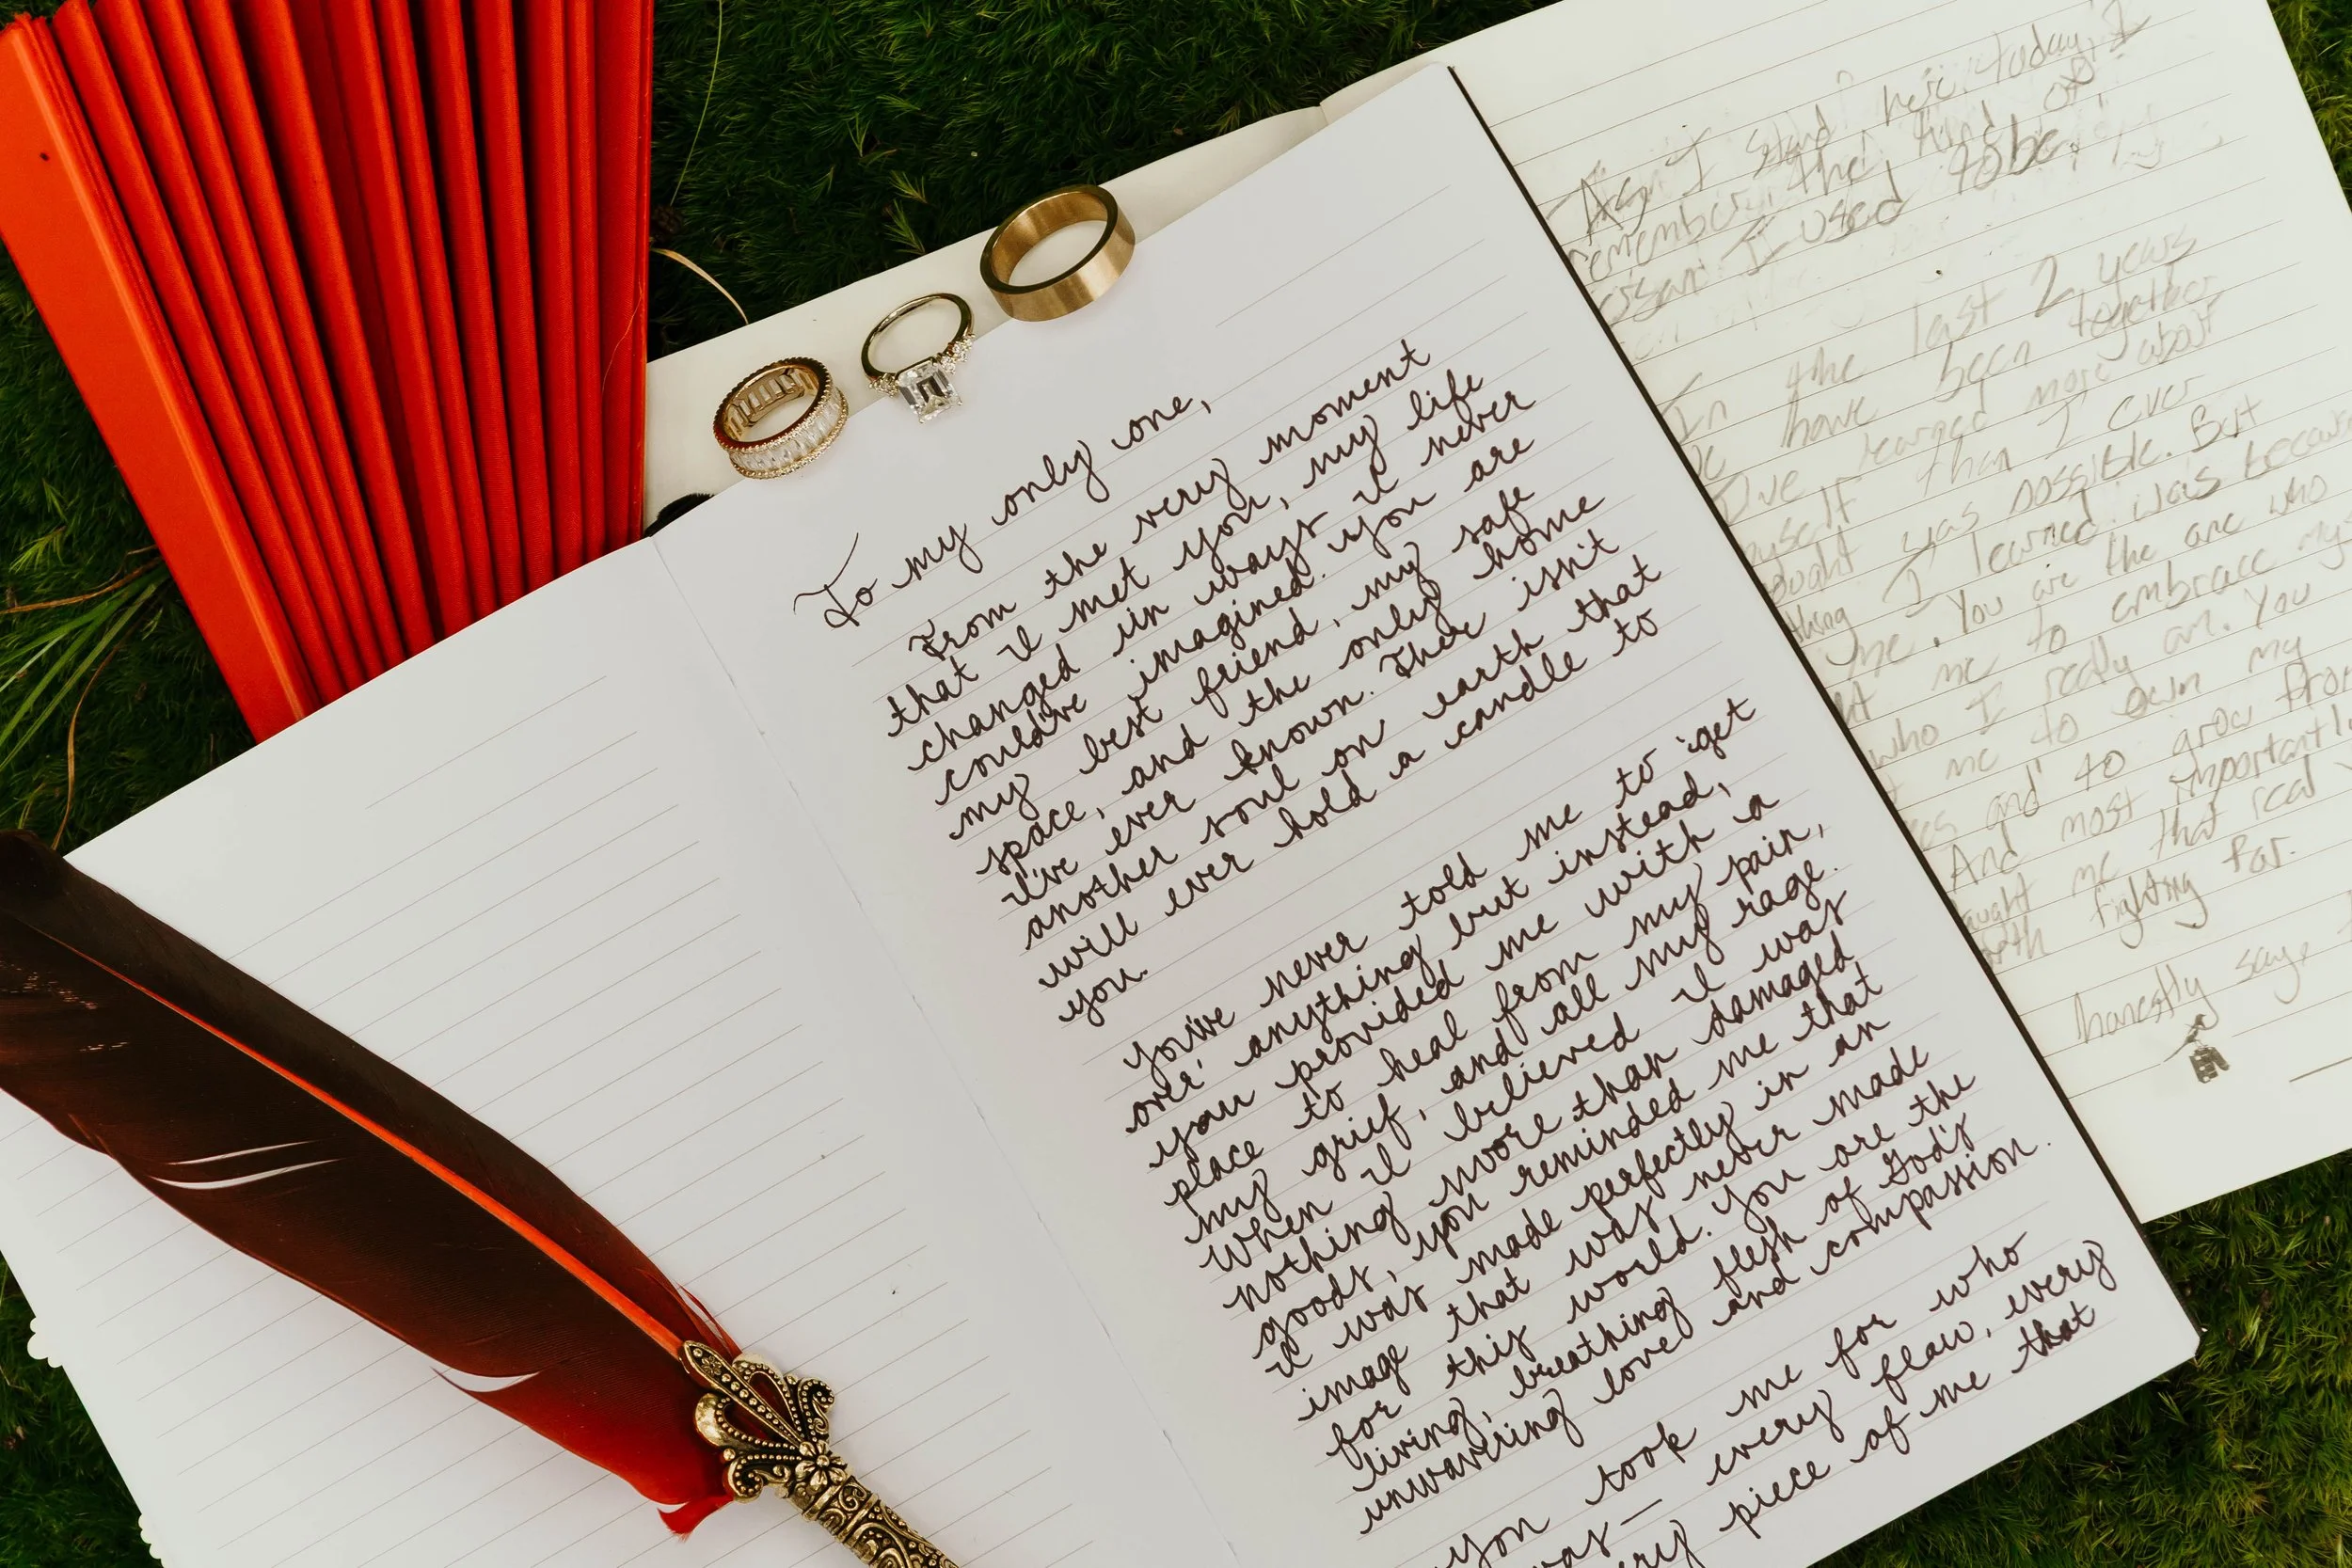 To my only one,
From the very moment
that I met you, my life
changed in ways I never
could've imagined. You are
my best friend, my safe
space, and the only home
I've ever known. There isn't
another soul on earth that
will ever hold a candle to
you.
You've never told me to 'get
over' anything but instead,
you provided me with a
place to heal from my pain,
my grief, and all my rage.
When I believed I was
nothing more than damaged
goods, you reminded me that
I was made perfectly in an
image that was never made
for this world. You are the
living, breathing flesh of God's
unwavering love and compassion.
You took me for who
was — every flaw, every
piece of me that
As I stand here today, I
remember the kind of
I used to be.
In the last 2 years
have been together
I've learned more about
than I ever
was possible. But
I learned was because
me. You are the one who
me to embrace my
who I really am. You
me to own my
and to grow from
And most importantly
me that real
fighting for.
honestly say